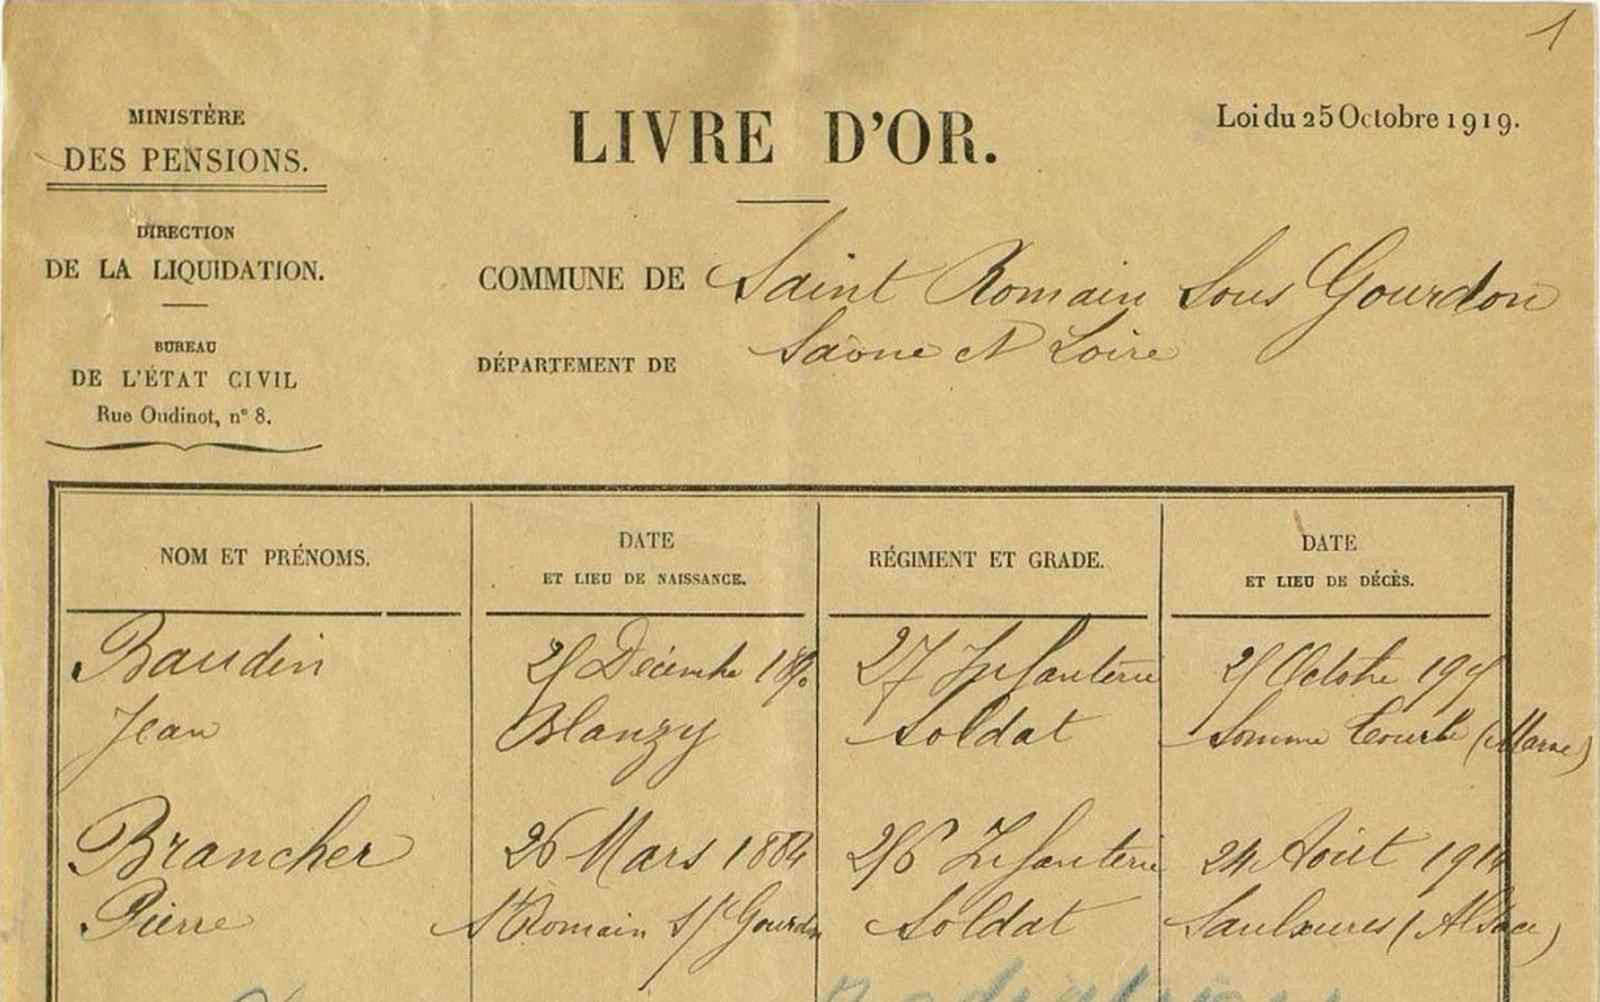 1
MINISTÈRE
DES PENSIONS.
DIRECTION
DE LA LIQUIDATION.
BUREAU
DE L'ÉTAT CIVIL
Rue Oudinot, n° 8.
LIVRE D'OR.
Loi du 25 Octobre 1919.
COMMUNE DE Saint Romain Sous Gourdon
DÉPARTEMENT DE Saône et Loire
NOM ET PRÉNOMS.
DATE
ET LIEU DE NAISSANCE.
RÉGIMENT ET GRADE.
DATE
ET LIEU DE DÉCÈS.
Baudin
Décembre
27 Infanterie
Octobre
Jean
Blanzy
Soldat
Somme Tourbe (Marne)
Brancher
26 Mars 1884
Infanterie
24 Août 1914
Pierre
St Romain s/s Gourdon
Soldat
Saulxures (Alsace)